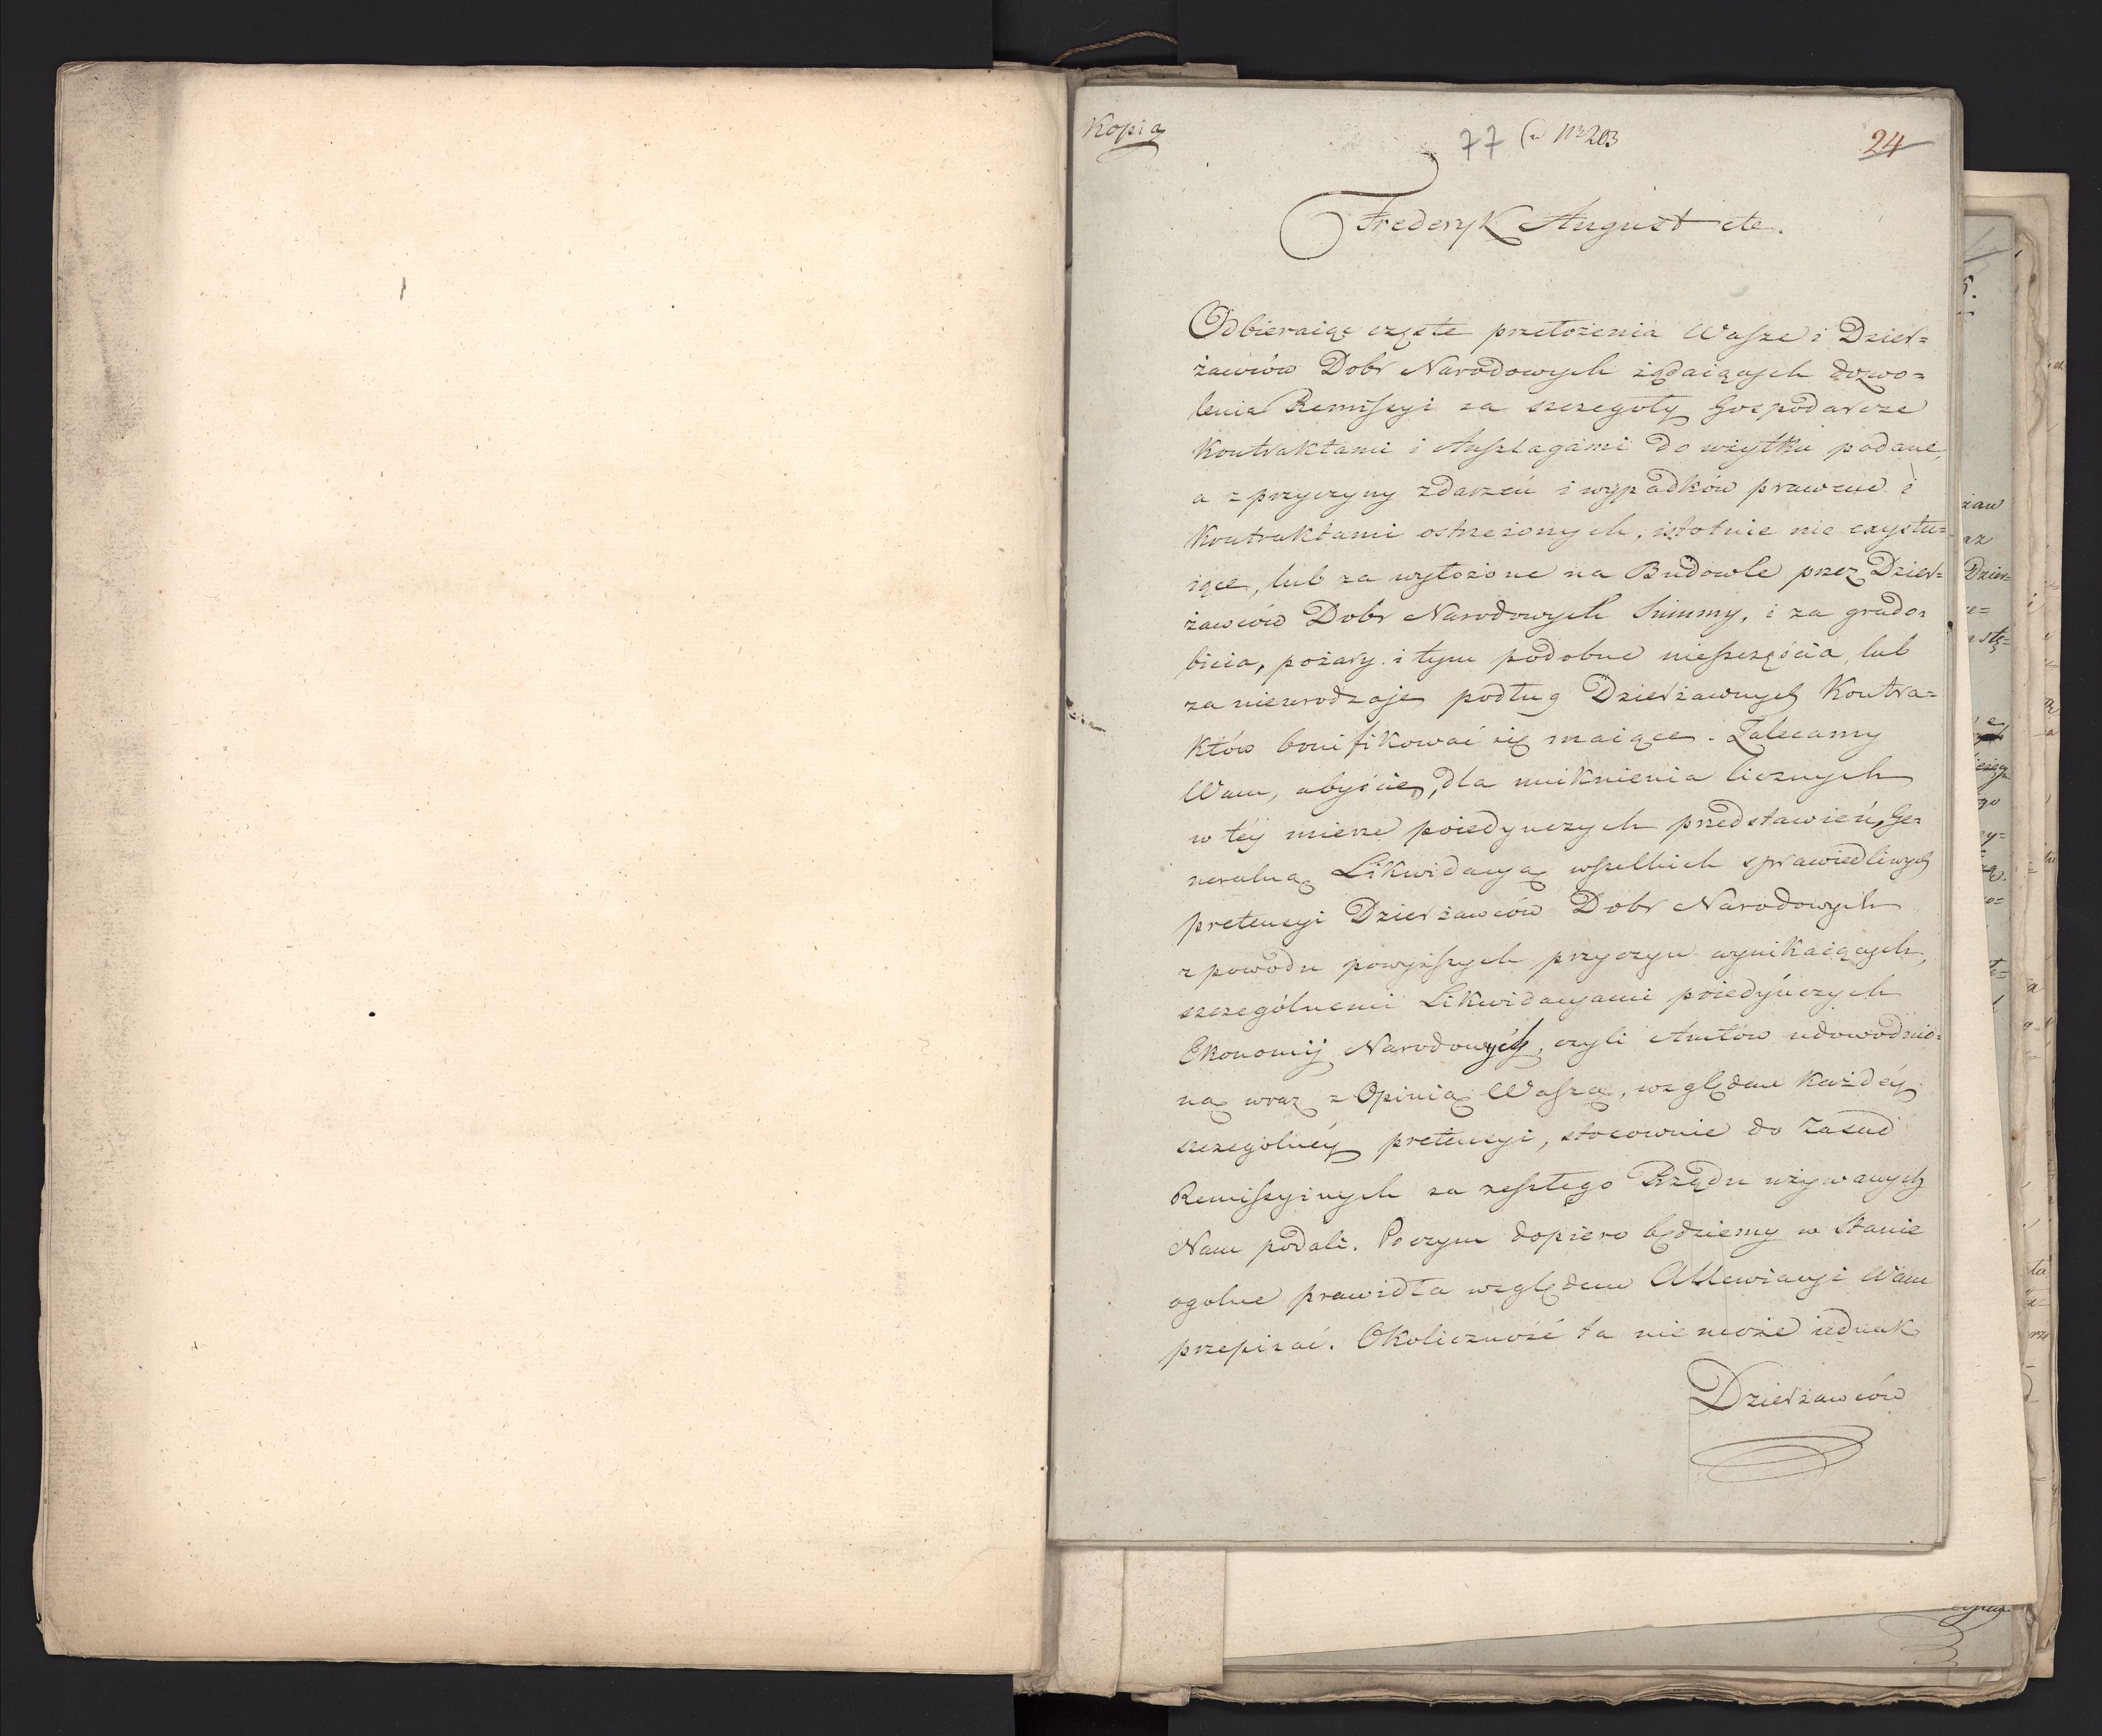 Kopia
77 (2 Nr 203
24
Frederyk August etc.
Odbieraiąc częste przełożenia Wasze i Dzier=
żawców Dobr Narodowych żądaiących dozwo=
lenia Remissyi za szczegoły Gospodarcze
Kontraktami i Anszlagami do użytku podane,
a z przyczyny zdarzeń i wypadków prawem i
Kontraktami ostrzeżonych, istotnie nie exystu=
iące, lub za wyłożone na Budowle przez Dzier=
żawców Dobr Narodowych Summy, i za grado=
bicia, pożary i tym podobne nieszczęścia, lub
za nieurodzaje podług Dzierżawnych Kontra=
któw bonifikować się maiące. Zalecamy
Wam, abyście, dla uniknienia licznych
w téy mierze poiedynczych przedstawień, Ge=
neralną Likwidacyą wszelkich sprawiedliwych
pretensyi Dzierżawców Dobr Narodowych
z powodu powyższych przyczyn wynikaiących,
szczególnemi Likwidacyami poiedyńczych
Ekonomij Narodowych, czyli Amtów udowodnio=
ną wraz z Opinią Waszą, względem każdéy
szczególnéy pretensyi, stosownie do Zasad
Remissyinych za zeszłego Rządu używanych
Nam podali. Poczym dopiero będziemy w Stanie
ogolne prawidła względem Allewiacyi Wam
przepisać. Okoliczność ta nie może iednak
Dzierżawców